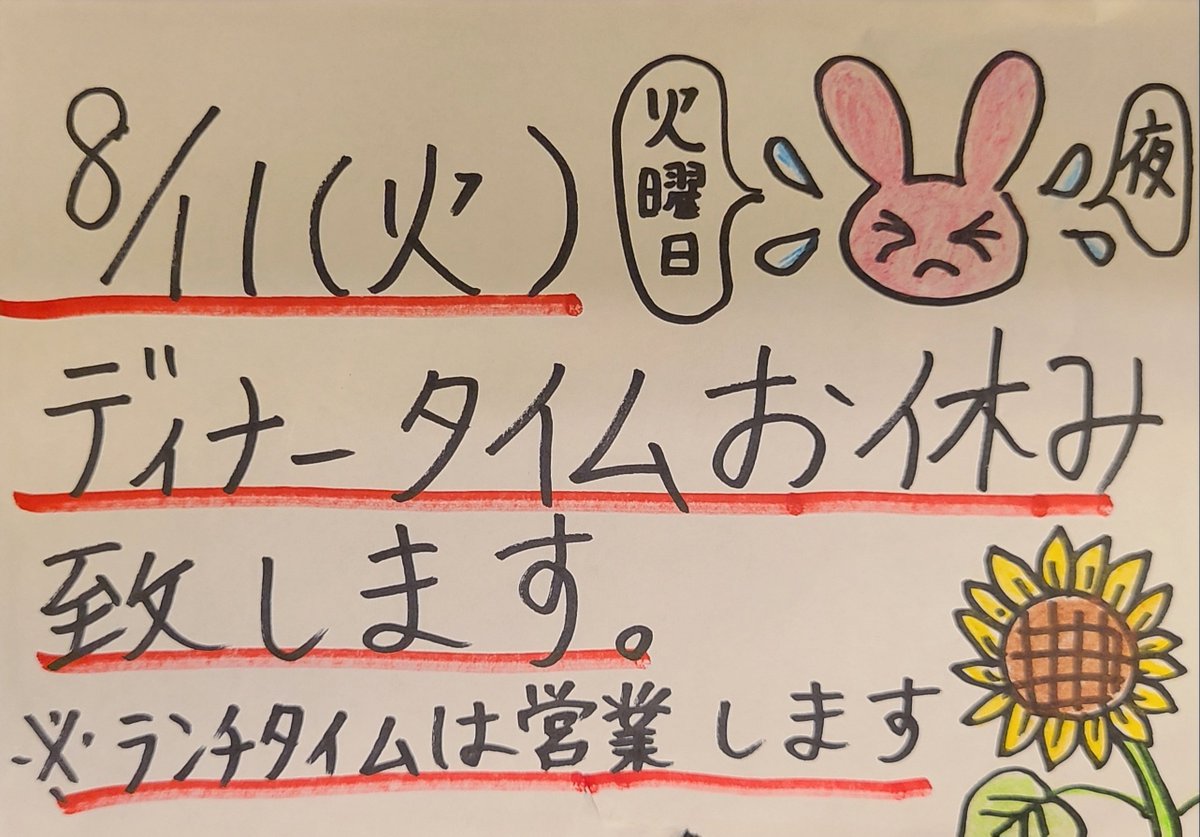 8/11(火)
火曜日
夜
ディナータイムお休み
致します。
※ランチタイムは営業します